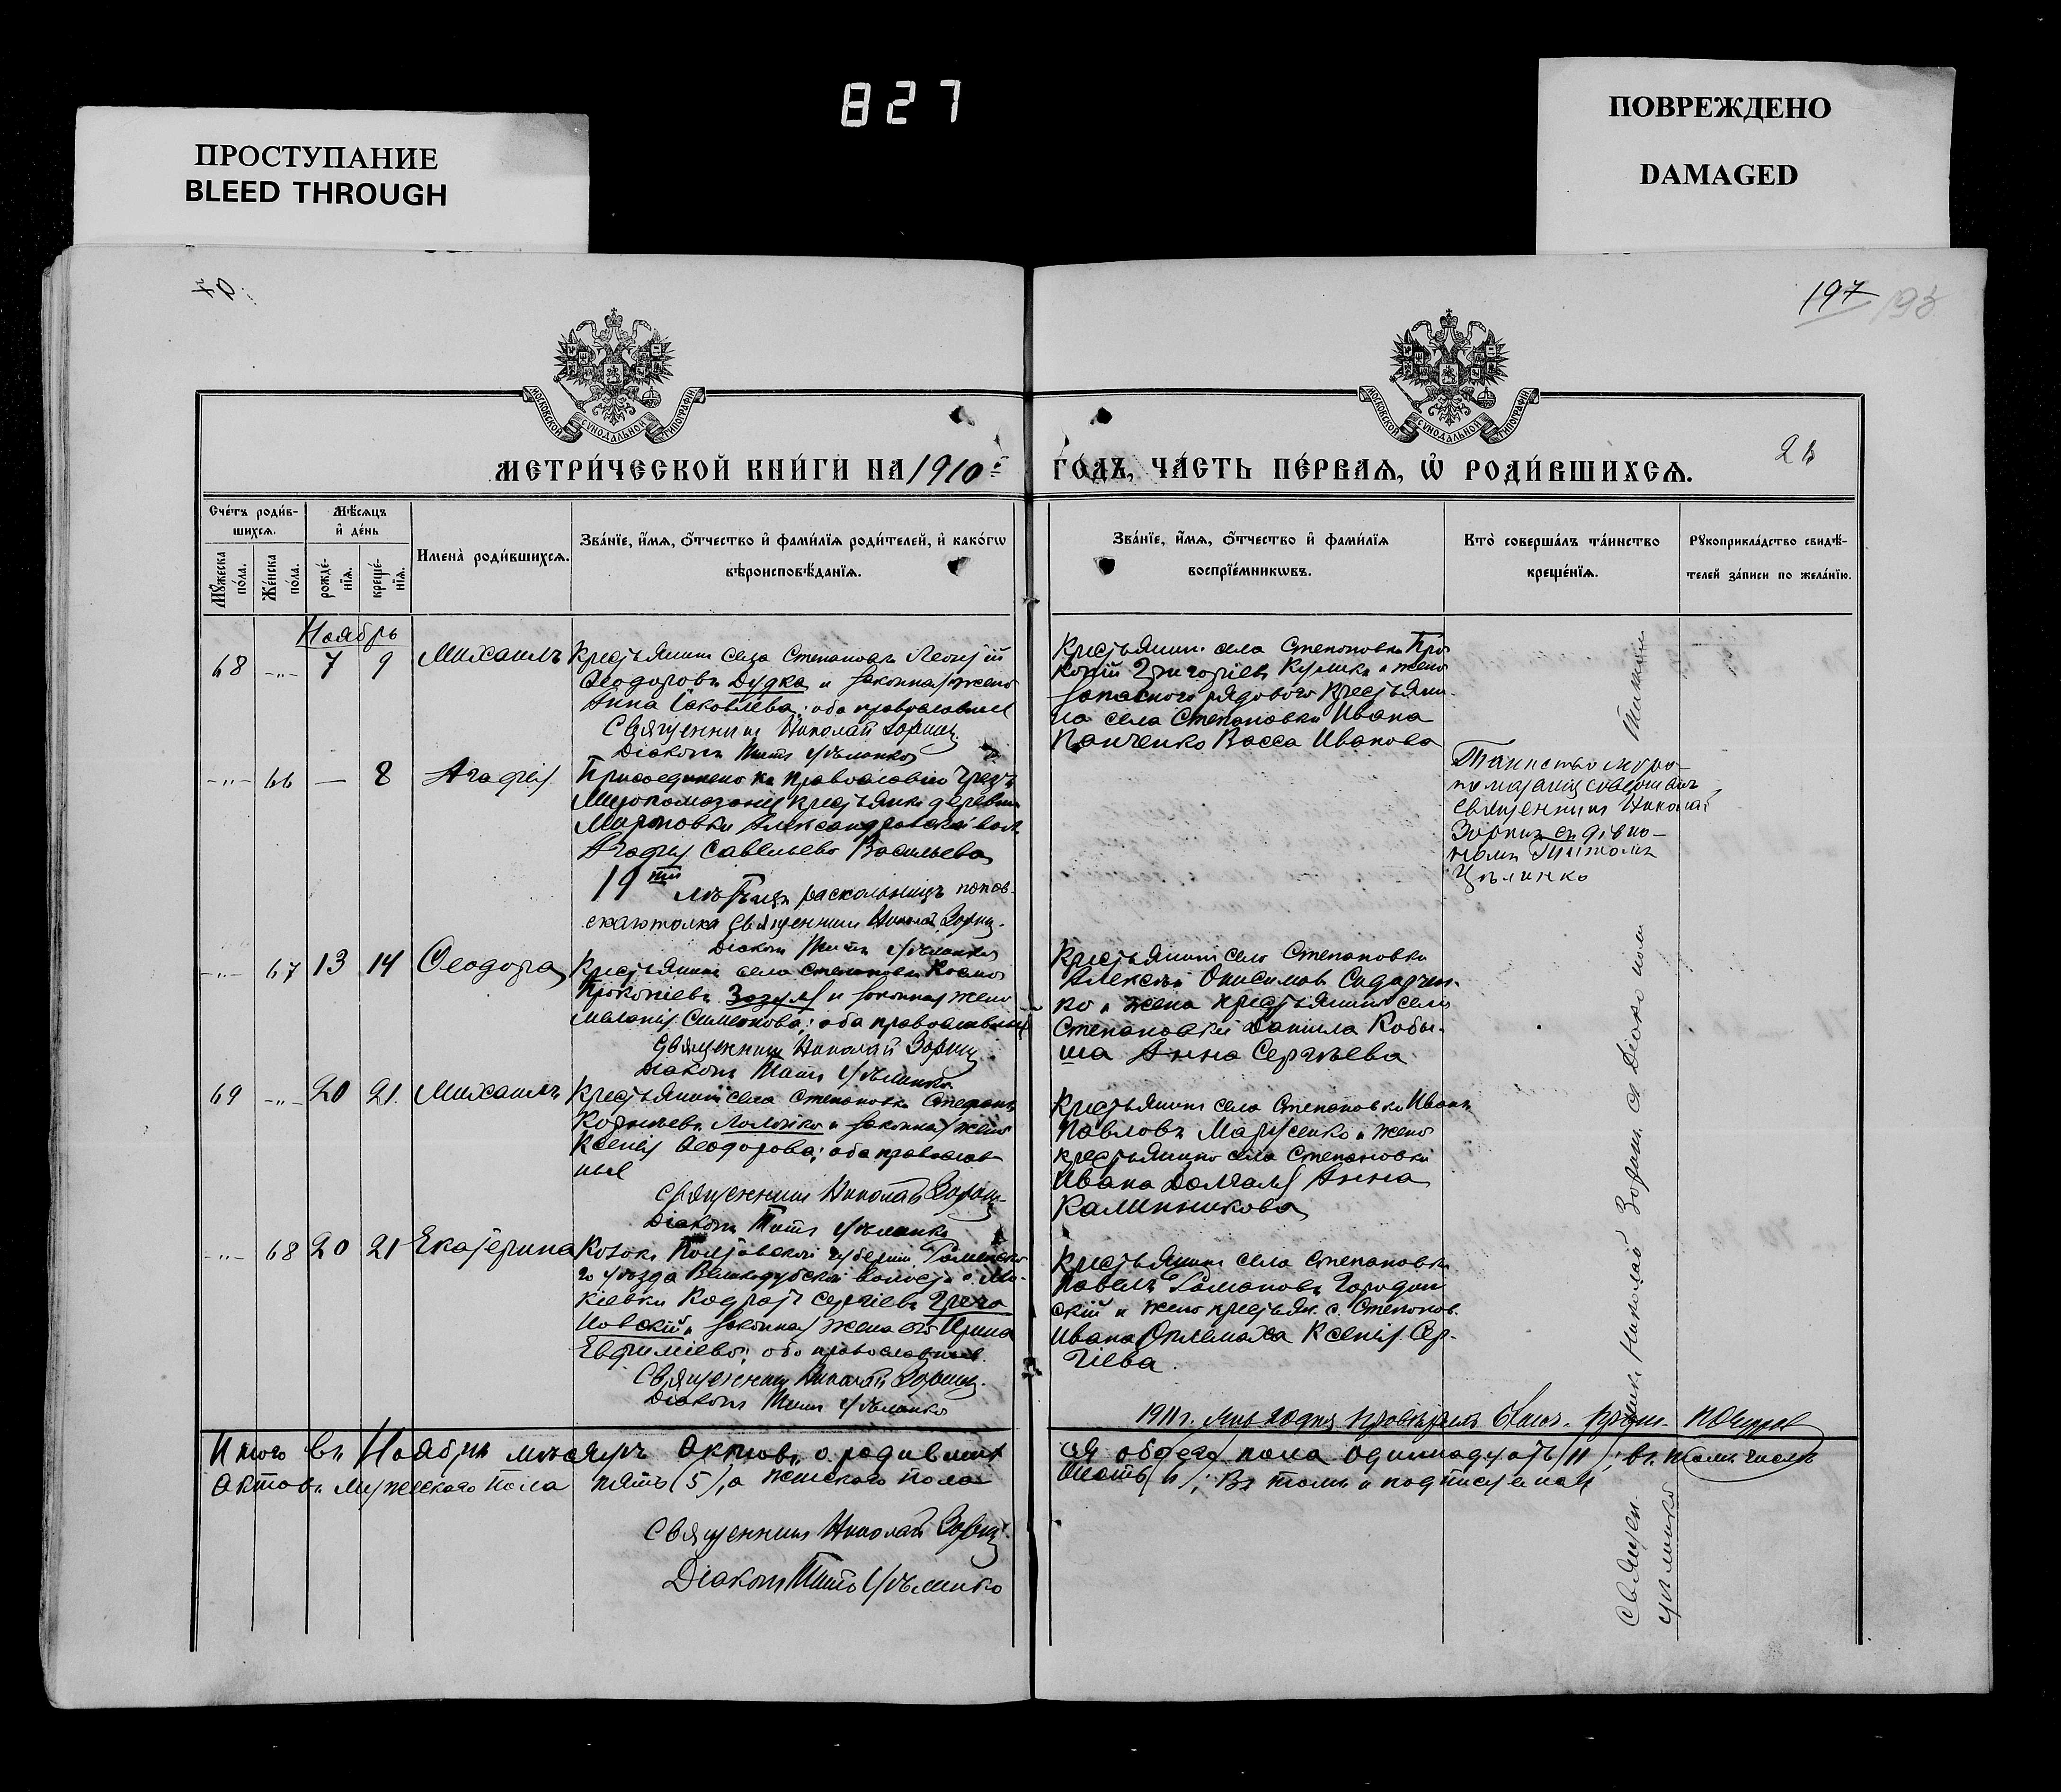 827
ПРОСТУПАНИЕ
BLEED THROUGH
ПОВРЕЖДЕНО
DAMAGED
197
МОСКОВСКОЙ СУНОДАЛЬНОЙ ТИПОГРАФІИ
МОСКОВСКОЙ СУНОДАЛЬНОЙ ТИПОГРАФІИ
МЕТРИ́ЧЕСКОЙ КНИ́ГИ НА 1910 ГО́ДЪ, ЧА́СТЬ ПЕ́РВАѦ, Ѡ҆ РОДИ́ВШИХСѦ.
Сче́тъ роди́в-
шихсѧ.
Мѣ́сяцъ
и҆ де́нь
Мꙋ́жеска
по́ла.
Же́нска
по́ла.
рожде́-
нїѧ.
креще́-
нїѧ.
Имена̀ роди́вшихсѧ.
Зва́нїе, и҆́мѧ, ѻ҆́тчество и҆ фами́лїѧ роди́телей, и҆ како́гѡ
вѣроисповѣ́данїѧ.
Зва́нїе, и҆́мѧ, ѻ҆́тчество и҆ фами́лїѧ
воспрїе́мникѡвъ.
Кто̀ соверша́лъ та́инство
креще́нїѧ.
Рꙋкоприкла́дство свидѣ́-
телей за́писи по жела́нїю.
Ноябрь
68 -"- 7 9 Михаилъ
Крестьянинъ села Степановки Леонтій
Ѳеодоровъ Дудка и законная жена
Анна Іаковлева; оба православные
Священникъ Николай Зоринъ
Діаконъ Титъ Цѣлинко
Крестьянинъ села Степановки Про-
копій Григоріевъ Кулика и жена
запасного рядового крестьяни-
на села Степановки Ивана
Панченко Васса Иванова
-"- 66 — 8 Агафія
Присоединена къ православію чрезъ
Мѵропомазаніе крестьянка деревни
Марьновки Александровской вол.
Агафія Савельева Васильева
19ти лѣтъ раскольница попов-
скаго толка Священникъ Николай Зоринъ.
Діаконъ Титъ Цѣлинко
Таинство мѵро-
помазанія совершалъ
священникъ Николай
Зоринъ съ діако-
номъ Титомъ
Цѣлинко
-"- 67 13 14 Ѳеодора
Крестьянинъ села Степановки Косма
Прокопіевъ Зозуля и законная жена
Меланія Симеонова; оба православные
Священникъ Николай Зоринъ
Діаконъ Титъ Цѣлинко
Крестьянинъ села Степановки
Алексѣй Онисимовъ Сидорчен-
ко и жена крестьянина села
Степановки Данила Кобы-
ша Анна Сергѣева
69 -"- 20 21. Михаилъ
Крестьянинъ села Степановки Стефанъ
Ксенія Ѳеодорова; оба православ-
ные
Священникъ Николай Зоринъ
Діаконъ Титъ Цѣлинко
Крестьянинъ села Степановки Иванъ
Павловъ Марусенко и жена
крестьянина села Степановки
Ивана Долгаля Анна
Калинникова
-"- 68 20 21 Екатерина
Козакъ Полтавской губерніи Роменска-
го уѣзда
Сергіевъ Греча
новскій и законная жена его Ирина
Евфиміева; оба православные.
Священникъ Николай Зоринъ.
Діаконъ Титъ Цѣлинко
Крестьянинъ села Степановки
Павелъ Романовъ Городин
скій и жена крестьян. с. Степанов.
Ивана Ксенія Сер-
гіева.
Священникъ Николай Зоринъ съ Діакономъ Титомъ
Цѣлинко
1911 г.
Итого въ Ноябрѣ мѣсяцѣ Актовъ о родивших
ся обоего пола одиннадцать (11); въ томъ числѣ
Актовъ Мужескаго пола пять (5), а женскаго пола
шесть; Въ томъ и подписуемся
Священникъ Николай Зоринъ
Діаконъ Титъ Цѣлинко